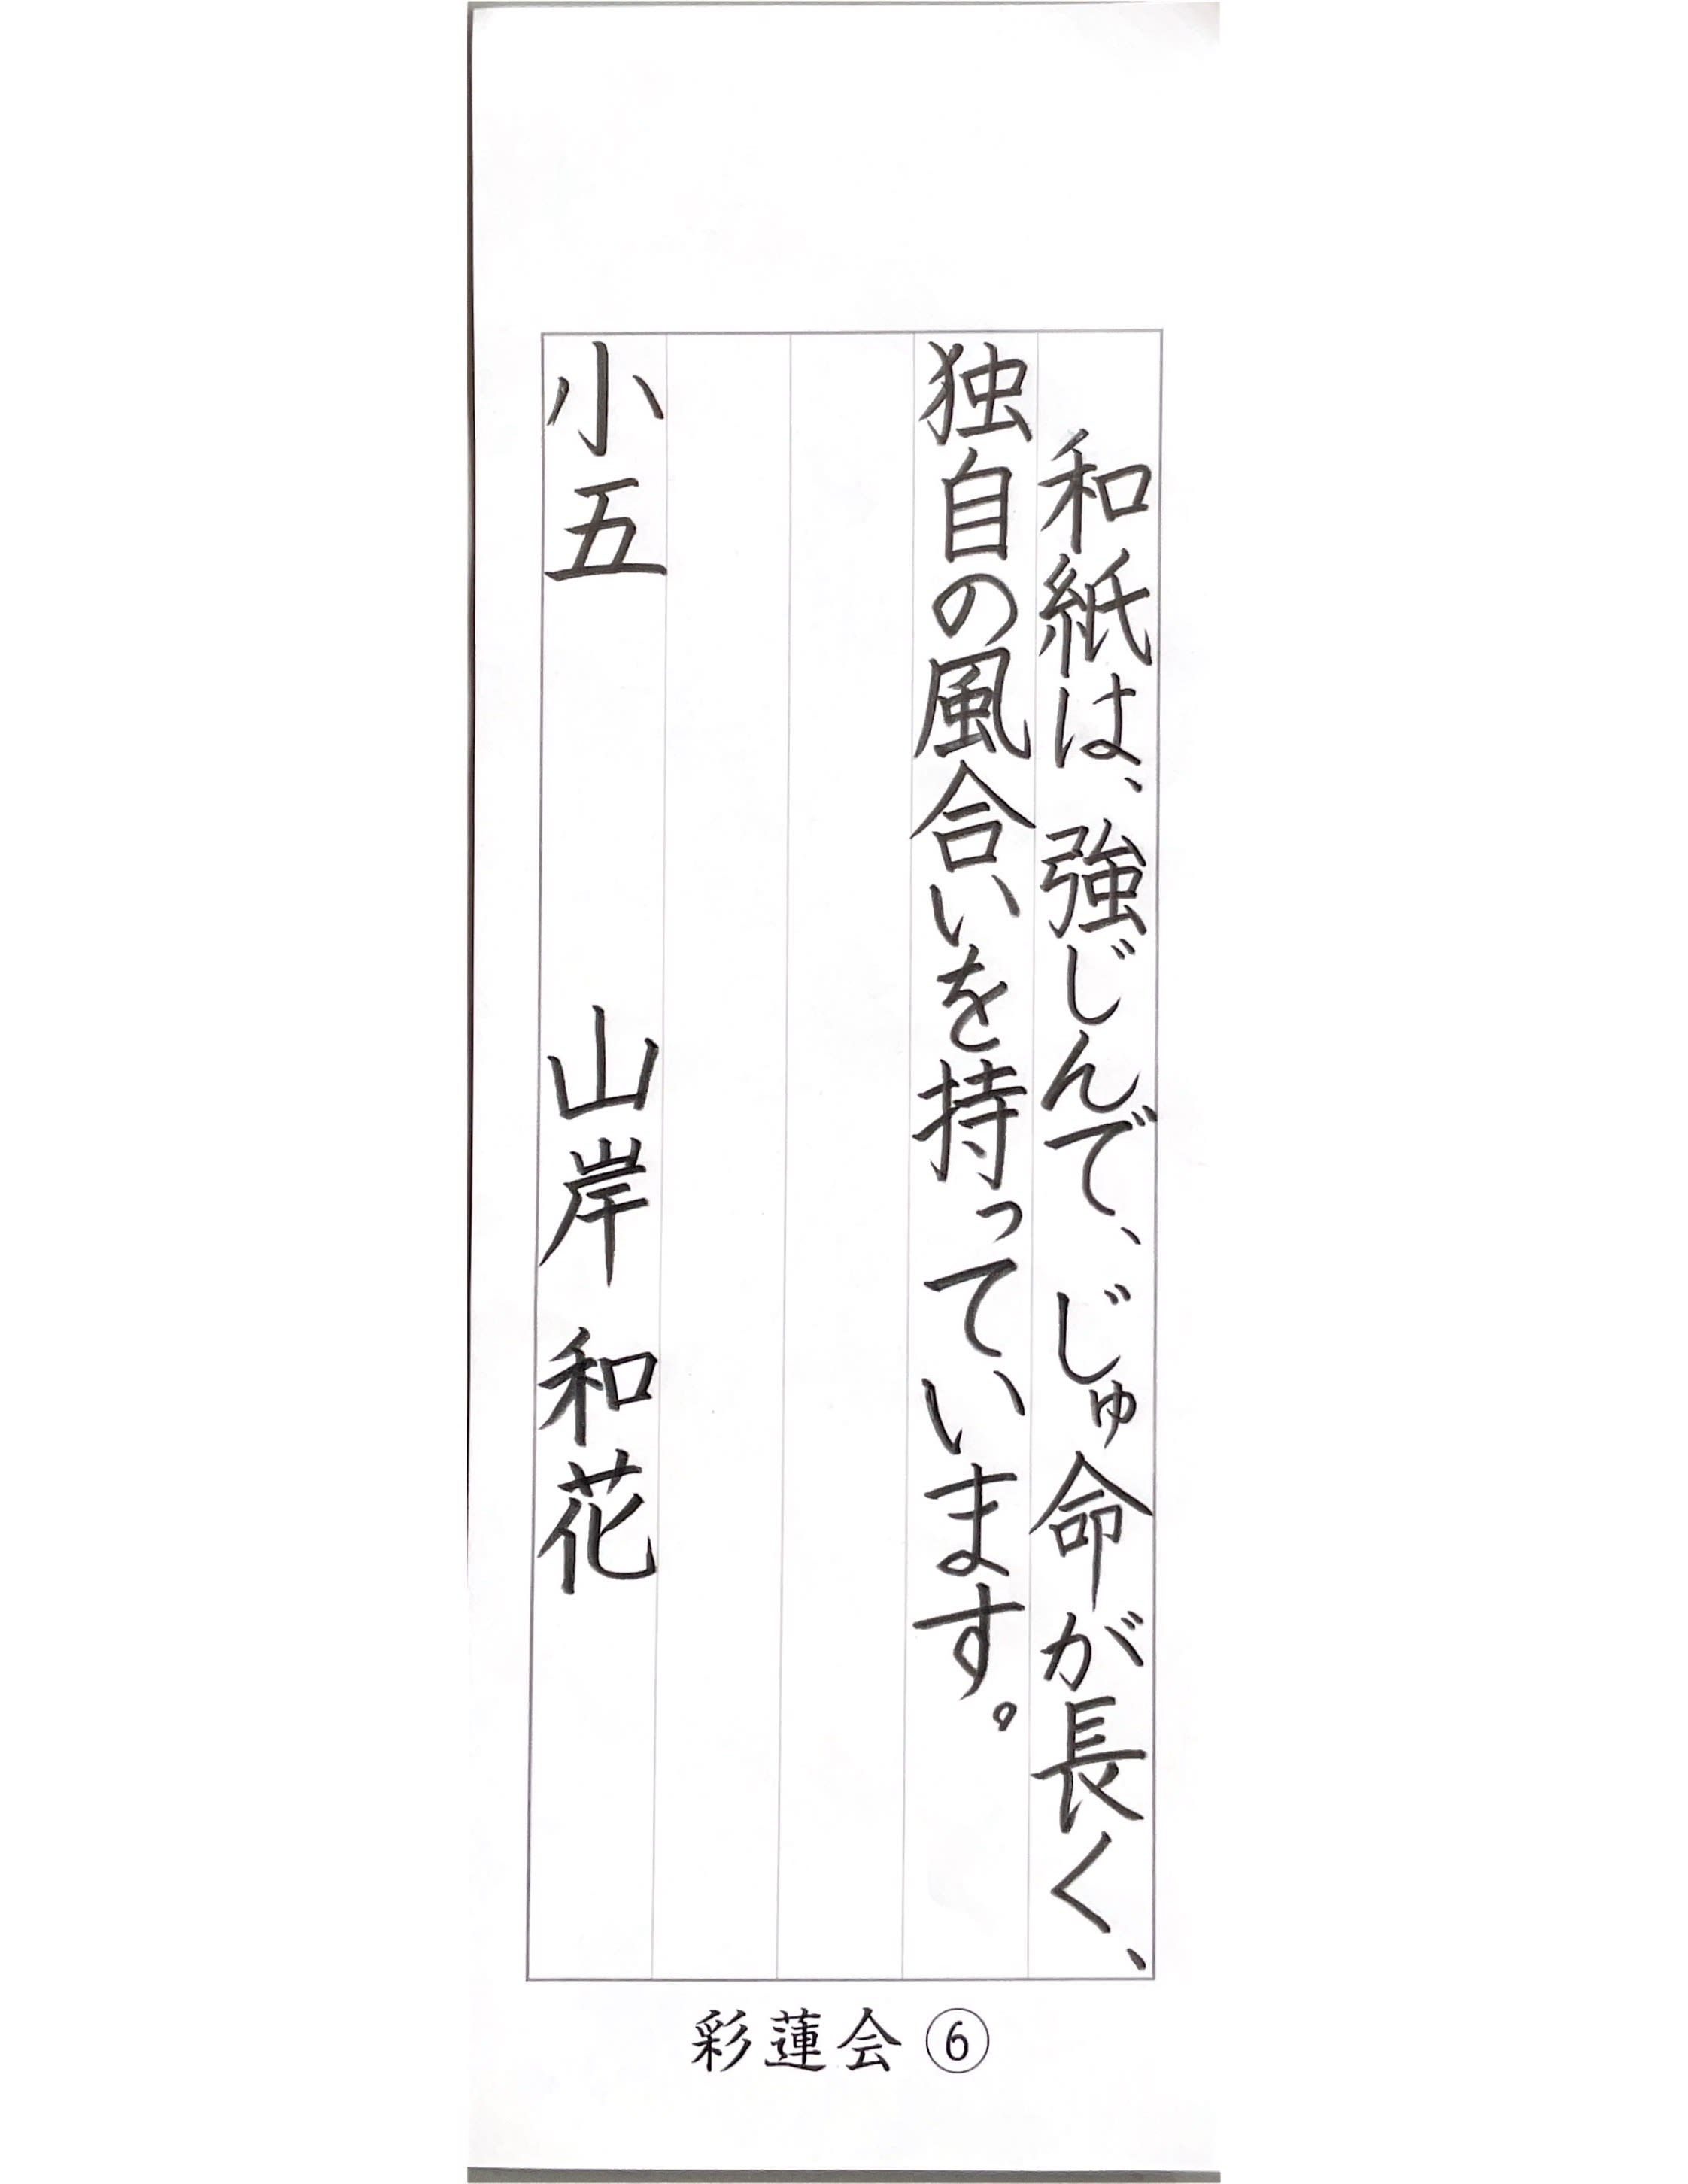 和紙は、強じんで、じゅ命が長く、
独自の風合いを持っています。
小五　山岸和花
彩蓮会⑥